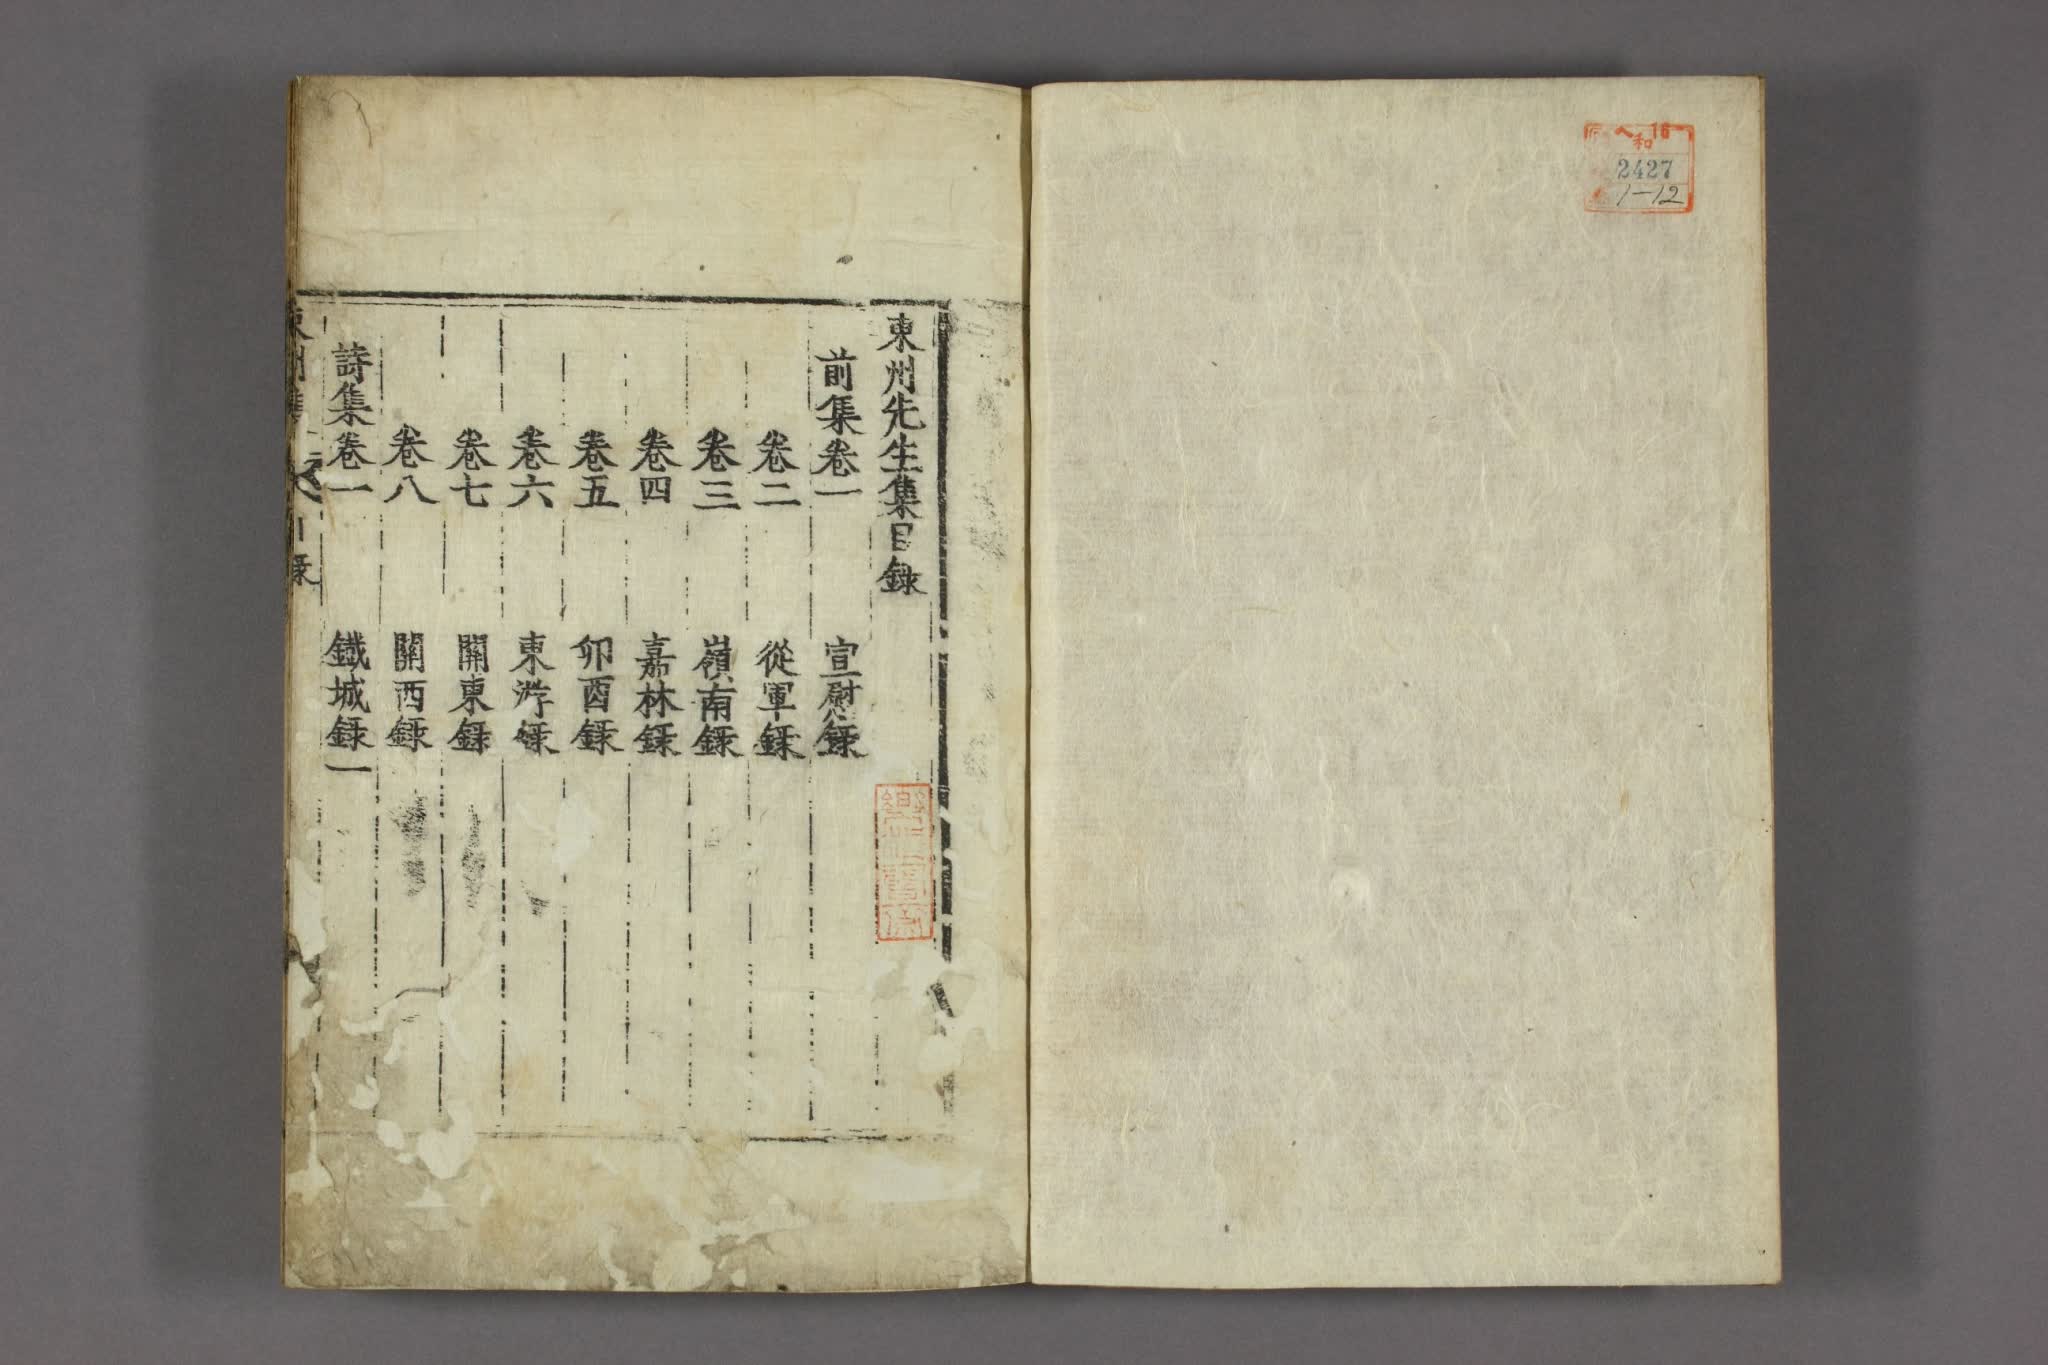 ヘ16
和
2427
1-12
東州先生集目錄
前集卷一 宣慰錄
卷二 從軍錄
卷三 嶺南錄
卷四 嘉林錄
卷五 卯酉錄
卷六 東游錄
卷七 關東錄
卷八 關西錄
詩集卷一 鐵城錄一
東州集